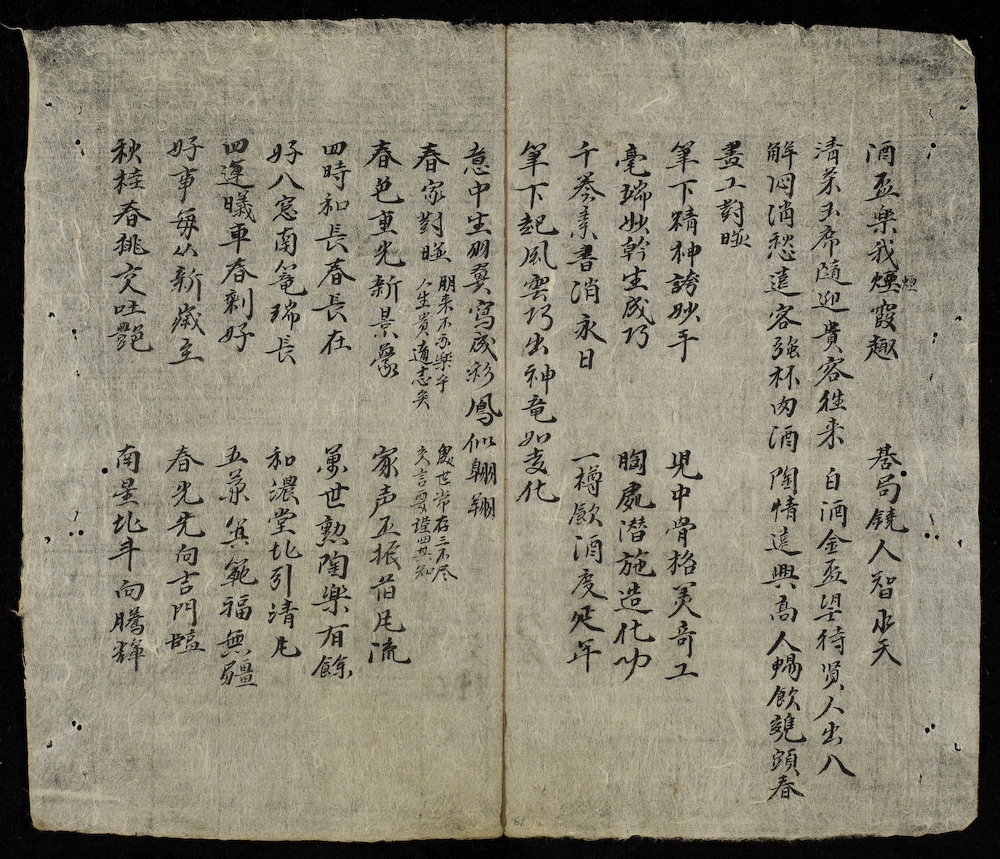 酒盃樂我煙霞趣 碁局饒人智水天
煙
清茶玉席隨迎貴客徃来 白酒金盃望待贤人出入
解悶消愁遠客强杯内酒 陶情遠興高人暢飲甕頭春
畫工對聯
筆下精神誇妙手 児中骨格羙竒工
毫端妙幹生成巧 胸處潜施造化功
千卷素書消永日 一樽飲酒度延年
筆下起風雲巧出神竜如变化
意中生羽翼寫成彩鳳似翺翔
春家對聯
朋来不亦樂乎
人生貴適志矣
處世常存三不尽
交言要謹四其知
春色重光新景象 家声丕振旧風流
四時和長春長在 萬世勲陶樂有餘
好入窓南篭瑞長 和濃堂北引清風
四運曦車春剩好 五葉箕範福無疆
好事每从新歲至 春光先向吉門臨
秋桂春桃交吐艷 南星北斗向騰輝